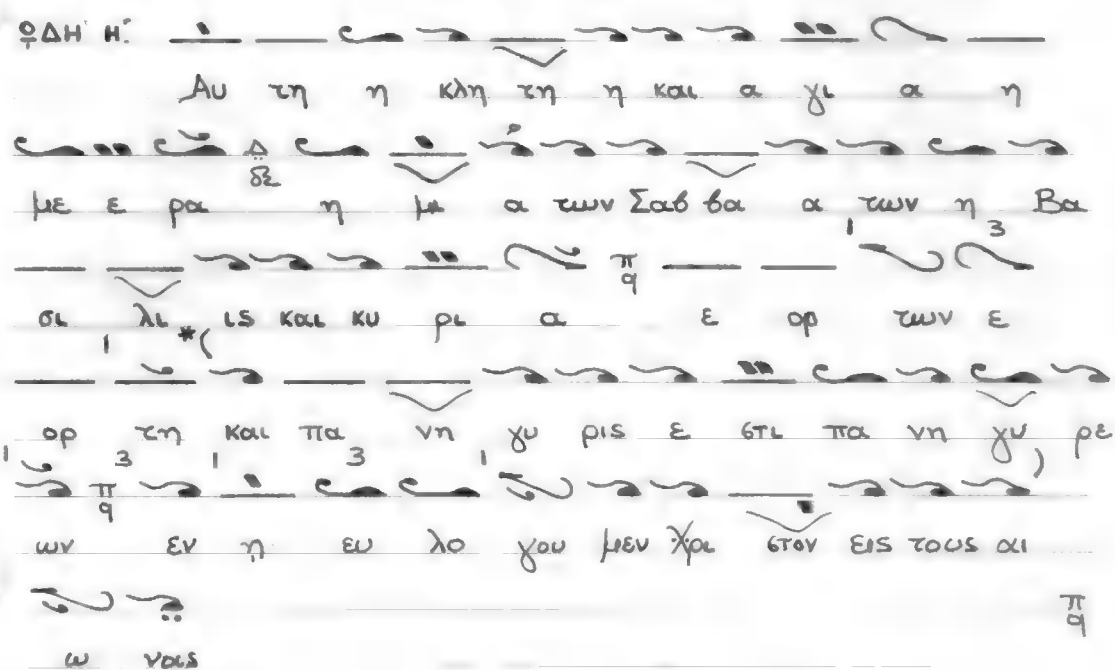 ᾨΔΗ Η΄.
Αυ τη η κλη τη η και α γι α η
Δ
δι
με ε ρα η μι α των Σαβ βα α των η Βα
1 3
π
q
σι λι ις και κυ ρι α ε ορ των ε
1 *(
ορ τη και πα νη γυ ρις ε στι πα νη γυ ρε
1 3 1 3 1 )
π
q
ων εν η ευ λο γου μεν Χρι στον εις τους αι
π
q
ω νας